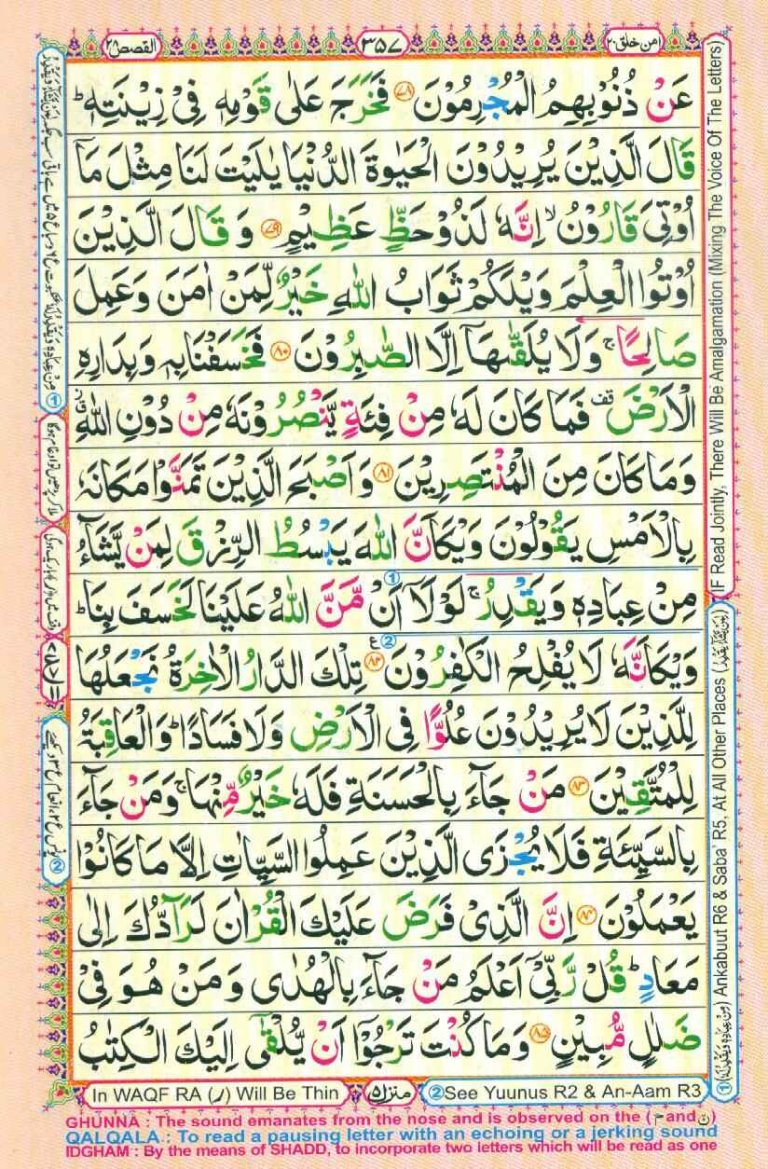 امن خلق ٢٠
٣٥٧
القصص ٢٨
عَنْ ذُنُوْبِهِمُ الْمُجْرِمُوْنَ ۝٧٨ فَخَرَجَ عَلٰى قَوْمِهٖ فِىْ زِيْنَتِهٖ ؕ
قَالَ الَّذِيْنَ يُرِيْدُوْنَ الْحَيٰوةَ الدُّنْيَا يٰلَيْتَ لَنَا مِثْلَ مَاۤ
اُوْتِىَ قَارُوْنُ ۙ اِنَّهٗ لَذُوْ حَظٍّ عَظِيْمٍ ۝٧٩ وَ قَالَ الَّذِيْنَ
اُوْتُوا الْعِلْمَ وَيْلَكُمْ ثَوَابُ اللّٰهِ خَيْرٌ لِّمَنْ اٰمَنَ وَعَمِلَ
صَالِحًا ۚ وَلَا يُلَقّٰٮهَاۤ اِلَّا الصّٰبِرُوْنَ ۝٨٠ فَخَسَفْنَا بِهٖ وَبِدَارِهِ
الْاَرْضَ قف فَمَا كَانَ لَهٗ مِنْ فِئَةٍ يَّنْصُرُوْنَهٗ مِنْ دُوْنِ اللّٰهِ
وَمَا كَانَ مِنَ الْمُنْتَصِرِيْنَ ۝٨١ وَاَصْبَحَ الَّذِيْنَ تَمَنَّوْا مَكَانَهٗ
بِالْاَمْسِ يَقُوْلُوْنَ وَيْكَاَنَّ اللّٰهَ يَبْسُطُ الرِّزْقَ لِمَنْ يَّشَآءُ
مِنْ عِبَادِهٖ وَيَقْدِرُ ۚ لَوْلَاۤ اَنْ مَّنَّ اللّٰهُ عَلَيْنَا لَخَسَفَ بِنَا ؕ
وَيْكَاَنَّهٗ لَا يُفْلِحُ الْكٰفِرُوْنَ ۝٨٢ تِلْكَ الدَّارُ الْاٰخِرَةُ نَجْعَلُهَا
لِلَّذِيْنَ لَا يُرِيْدُوْنَ عُلُوًّا فِى الْاَرْضِ وَلَا فَسَادًا ؕ وَالْعَاقِبَةُ
لِلْمُتَّقِيْنَ ۝٨٣ مَنْ جَآءَ بِالْحَسَنَةِ فَلَهٗ خَيْرٌ مِّنْهَا ۚ وَمَنْ جَآءَ
بِالسَّيِّئَةِ فَلَا يُجْزَى الَّذِيْنَ عَمِلُوا السَّيِّاٰتِ اِلَّا مَا كَانُوْا
يَعْمَلُوْنَ ۝٨٤ اِنَّ الَّذِىْ فَرَضَ عَلَيْكَ الْقُرْاٰنَ لَرَآدُّكَ اِلٰى
مَعَادٍ ؕ قُلْ رَّبِّىْۤ اَعْلَمُ مَنْ جَآءَ بِالْهُدٰى وَ مَنْ هُوَ فِىْ
ضَلٰلٍ مُّبِيْنٍ ۝٨٥ وَمَا كُنْتَ تَرْجُوْۤا اَنْ يُّلْقٰٓى اِلَيْكَ الْكِتٰبُ
(IF Read Jointly, There Will Be Amalgamation (Mixing The Voice Of The Letters)
① (مِنْ عِبَادِهٖ وَيَقْدِرُ لَهٗ) Ankabuut R6 & Saba' R5, At All Other Places
In WAQF RA (ر) Will Be Thin
منزل ٥
②See Yuunus R2 & An-Aam R3
GHUNNA : The sound emanates from the nose and is observed on the (م and ن)
QALQALA : To read a pausing letter with an echoing or a jerking sound
IDGHAM : By the means of SHADD, to incorporate two letters which will be read as one